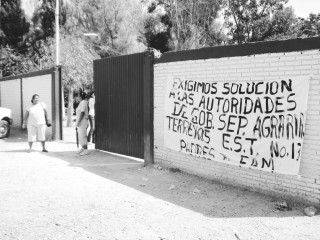 EXIGIMOS SOLUCION
A LAS AUTORIDADES
DE GOB. SEP. AGRARIA
TERRENOS E.S.T. No. 13
PADRES DE FAM